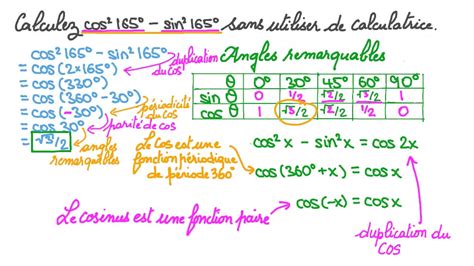 Calculez cos²165° − sin²165° sans utiliser de calculatrice.
cos²165° − sin²165°
= cos(2×165°)
= cos(330°)
= cos(360° − 30°)
= cos(−30°)
= cos 30°
= √3/2
duplication
du cos
périodicité
du cos
parité de cos
angles
remarquables
Angles remarquables
θ 0° 30° 45° 60° 90°
sin θ 0 1/2 √2/2 √3/2 1
cos θ 1 √3/2 √2/2 1/2 0
Le cos est une
fonction périodique
de période 360°
cos²x − sin²x = cos 2x
cos(360° + x) = cos x
cos(−x) = cos x
Le cosinus est une fonction paire
duplication du
cos